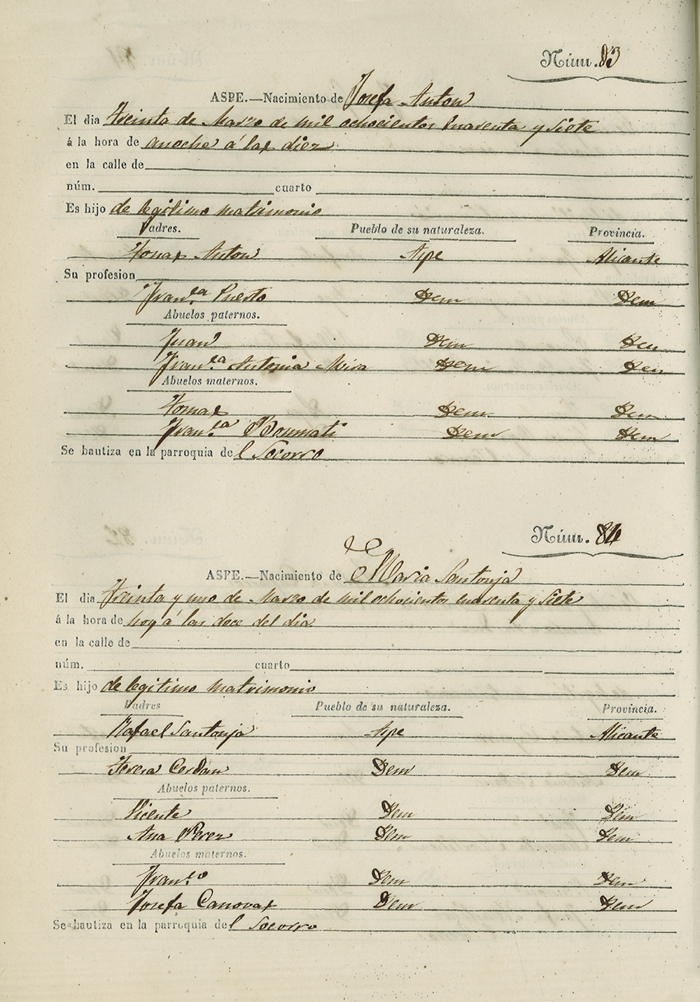 Núm. 83
ASPE.—Nacimiento de Josefa Anton
El dia treinta de Marzo de mil ochocientos cuarenta y siete
á la hora de anoche á las diez
en la calle de
núm. cuarto
Es hijo de legitimo matrimonio
Padres. Pueblo de su naturaleza. Provincia.
Tomas Anton Aspe Alicante
Su profesion
Fran.ca Puerto Idem Idem
Abuelos paternos.
Juan Idem Idem
Fran.ca Antonia Mira Idem Idem
Abuelos maternos.
Tomas Idem Idem
Fran.ca Idem Idem
Se bautiza en la parroquia del Socorro
Núm. 84
ASPE.—Nacimiento de Maria Santonja
El dia treinta y uno de Marzo de mil ochocientos cuarenta y siete
á la hora de hoy á las doce del dia
en la calle de
núm. cuarto
Es hijo de legitimo matrimonio
Padres Pueblo de su naturaleza. Provincia.
Rafael Santonja Aspe Alicante
Su profesion
Teresa Cerdan Idem Idem
Abuelos paternos.
Vicente Idem Idem
Ana Perez Idem Idem
Abuelos maternos.
Fran.co Idem Idem
Josefa Canovas Idem Idem
Se bautiza en la parroquia del Socorro